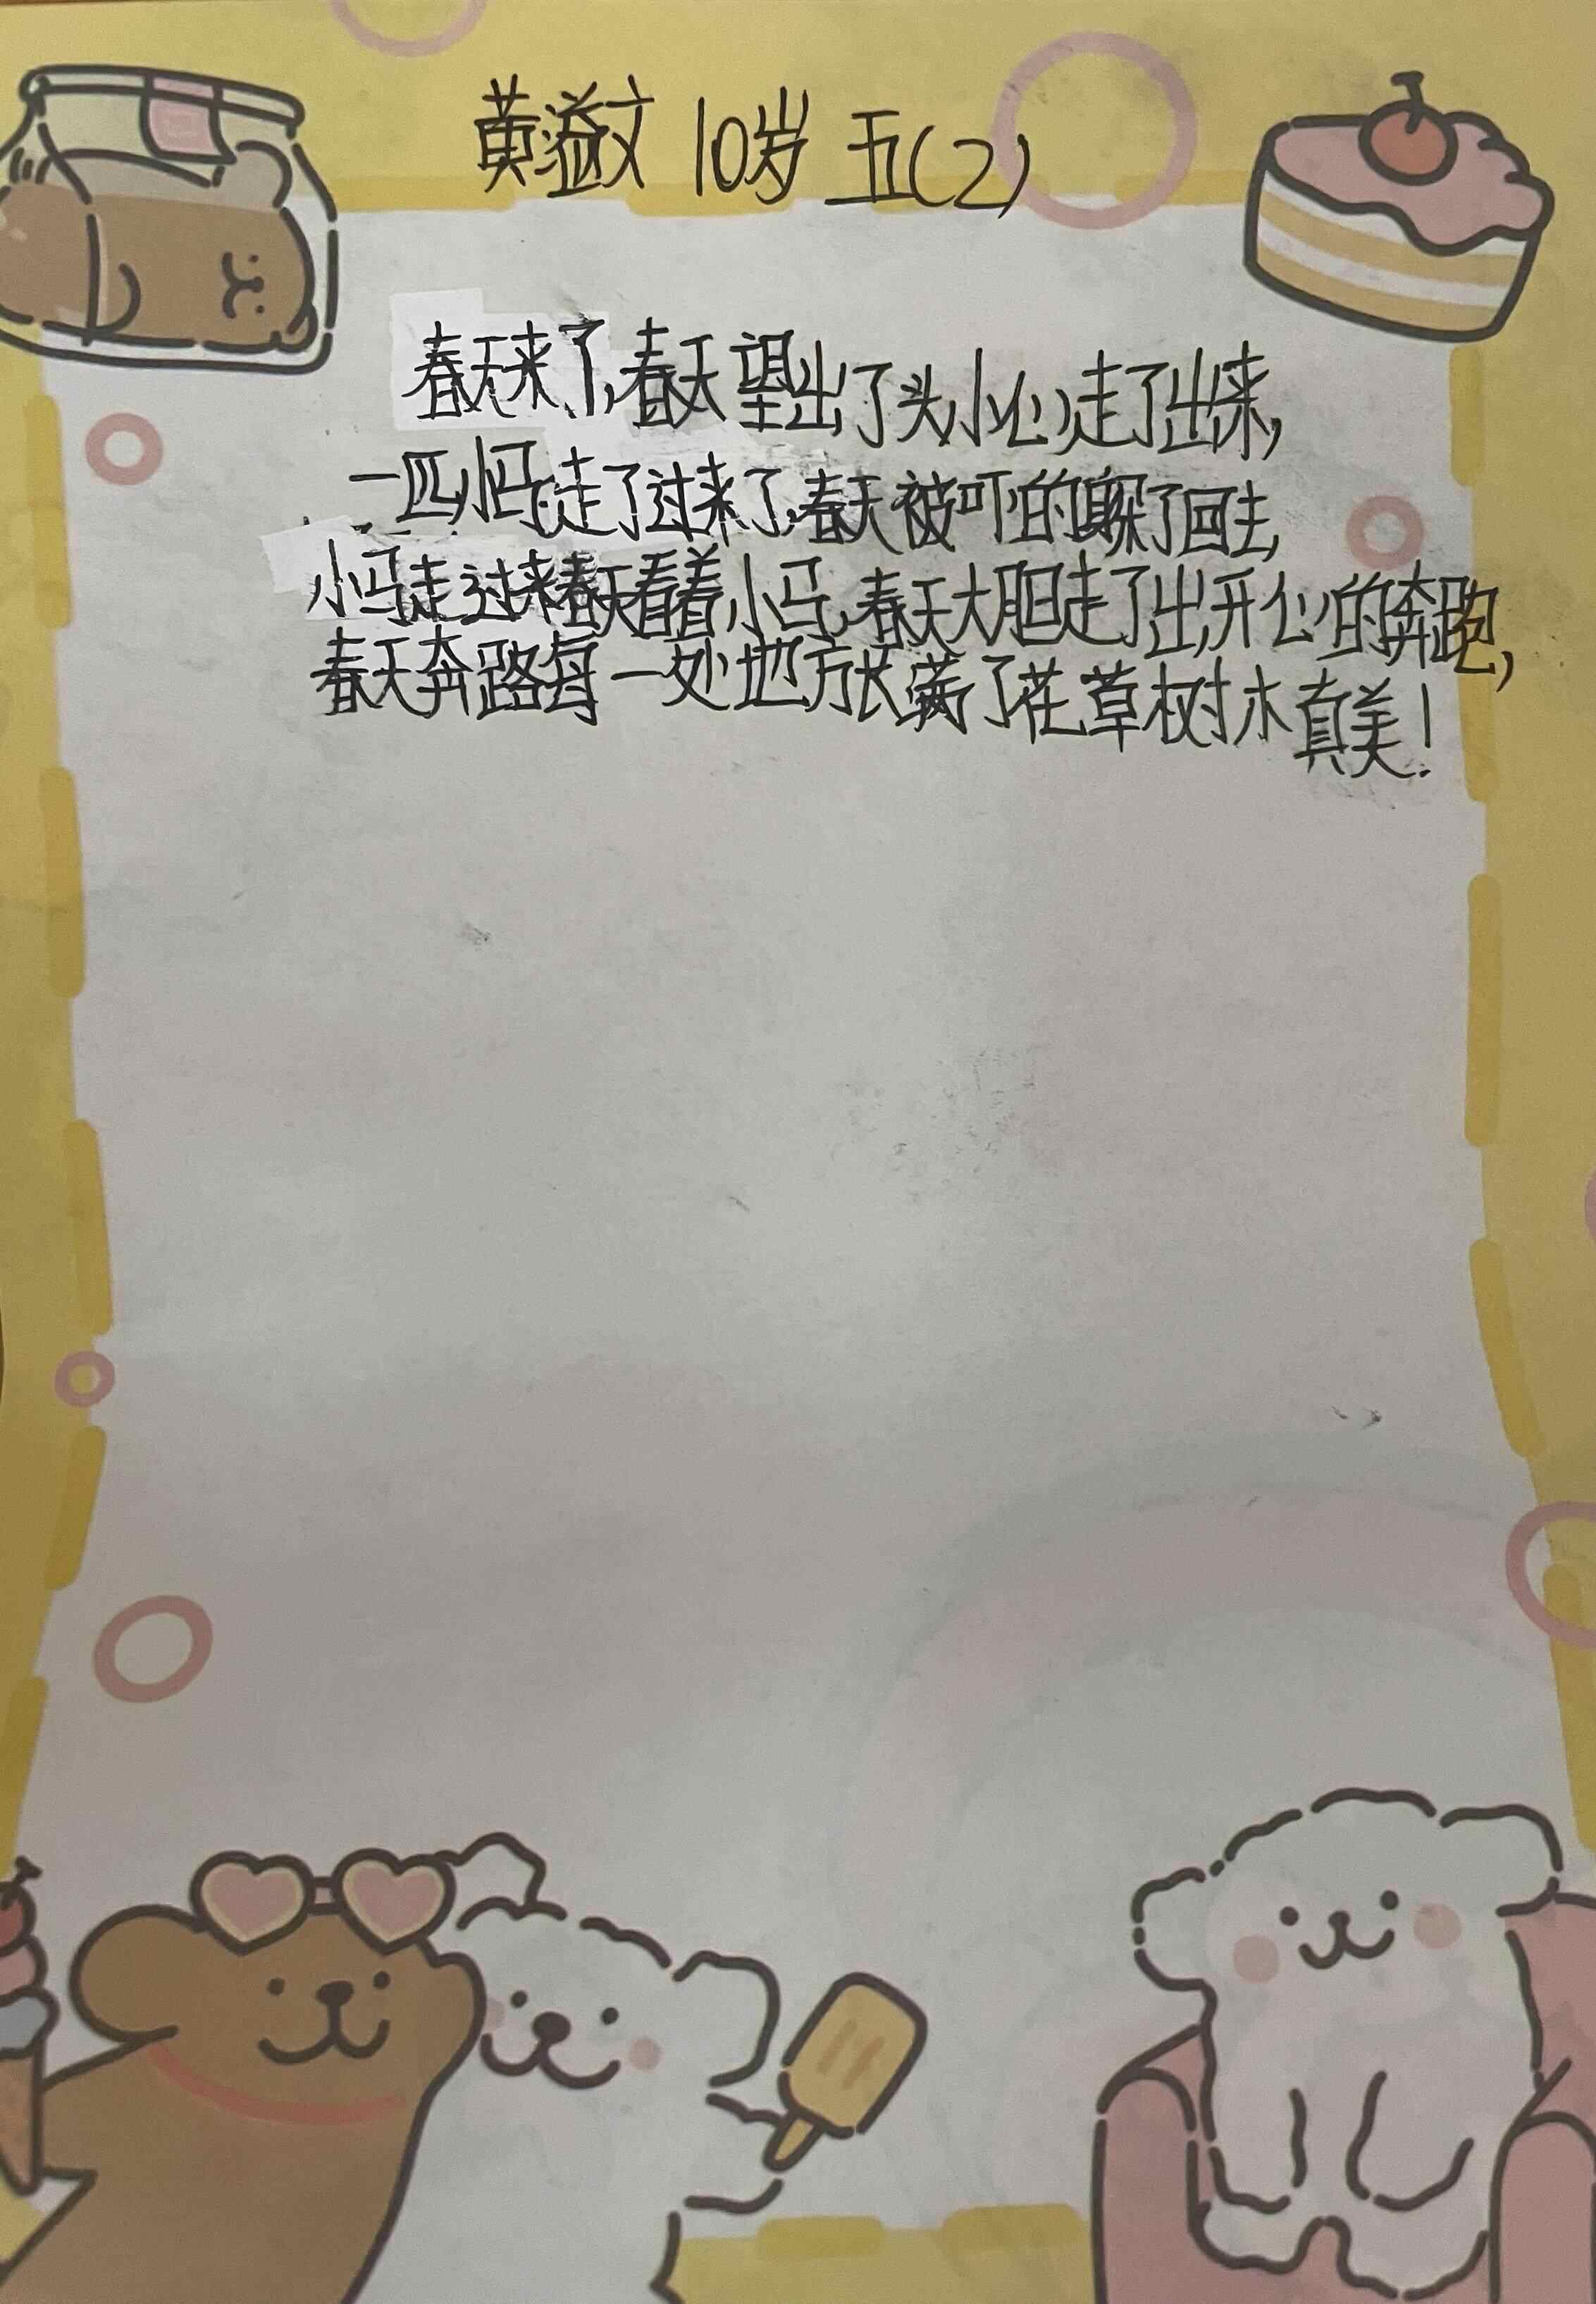 黄溢文 10岁 五(2)
春天来了,春天望出了头,小心走了出来,
一匹小马走了过来了,春天被吓的躲了回去,
小马走过来春天看着小马,春天大胆走了出,开心的奔跑,
春天奔路每一处地方长满了花草树木真美!